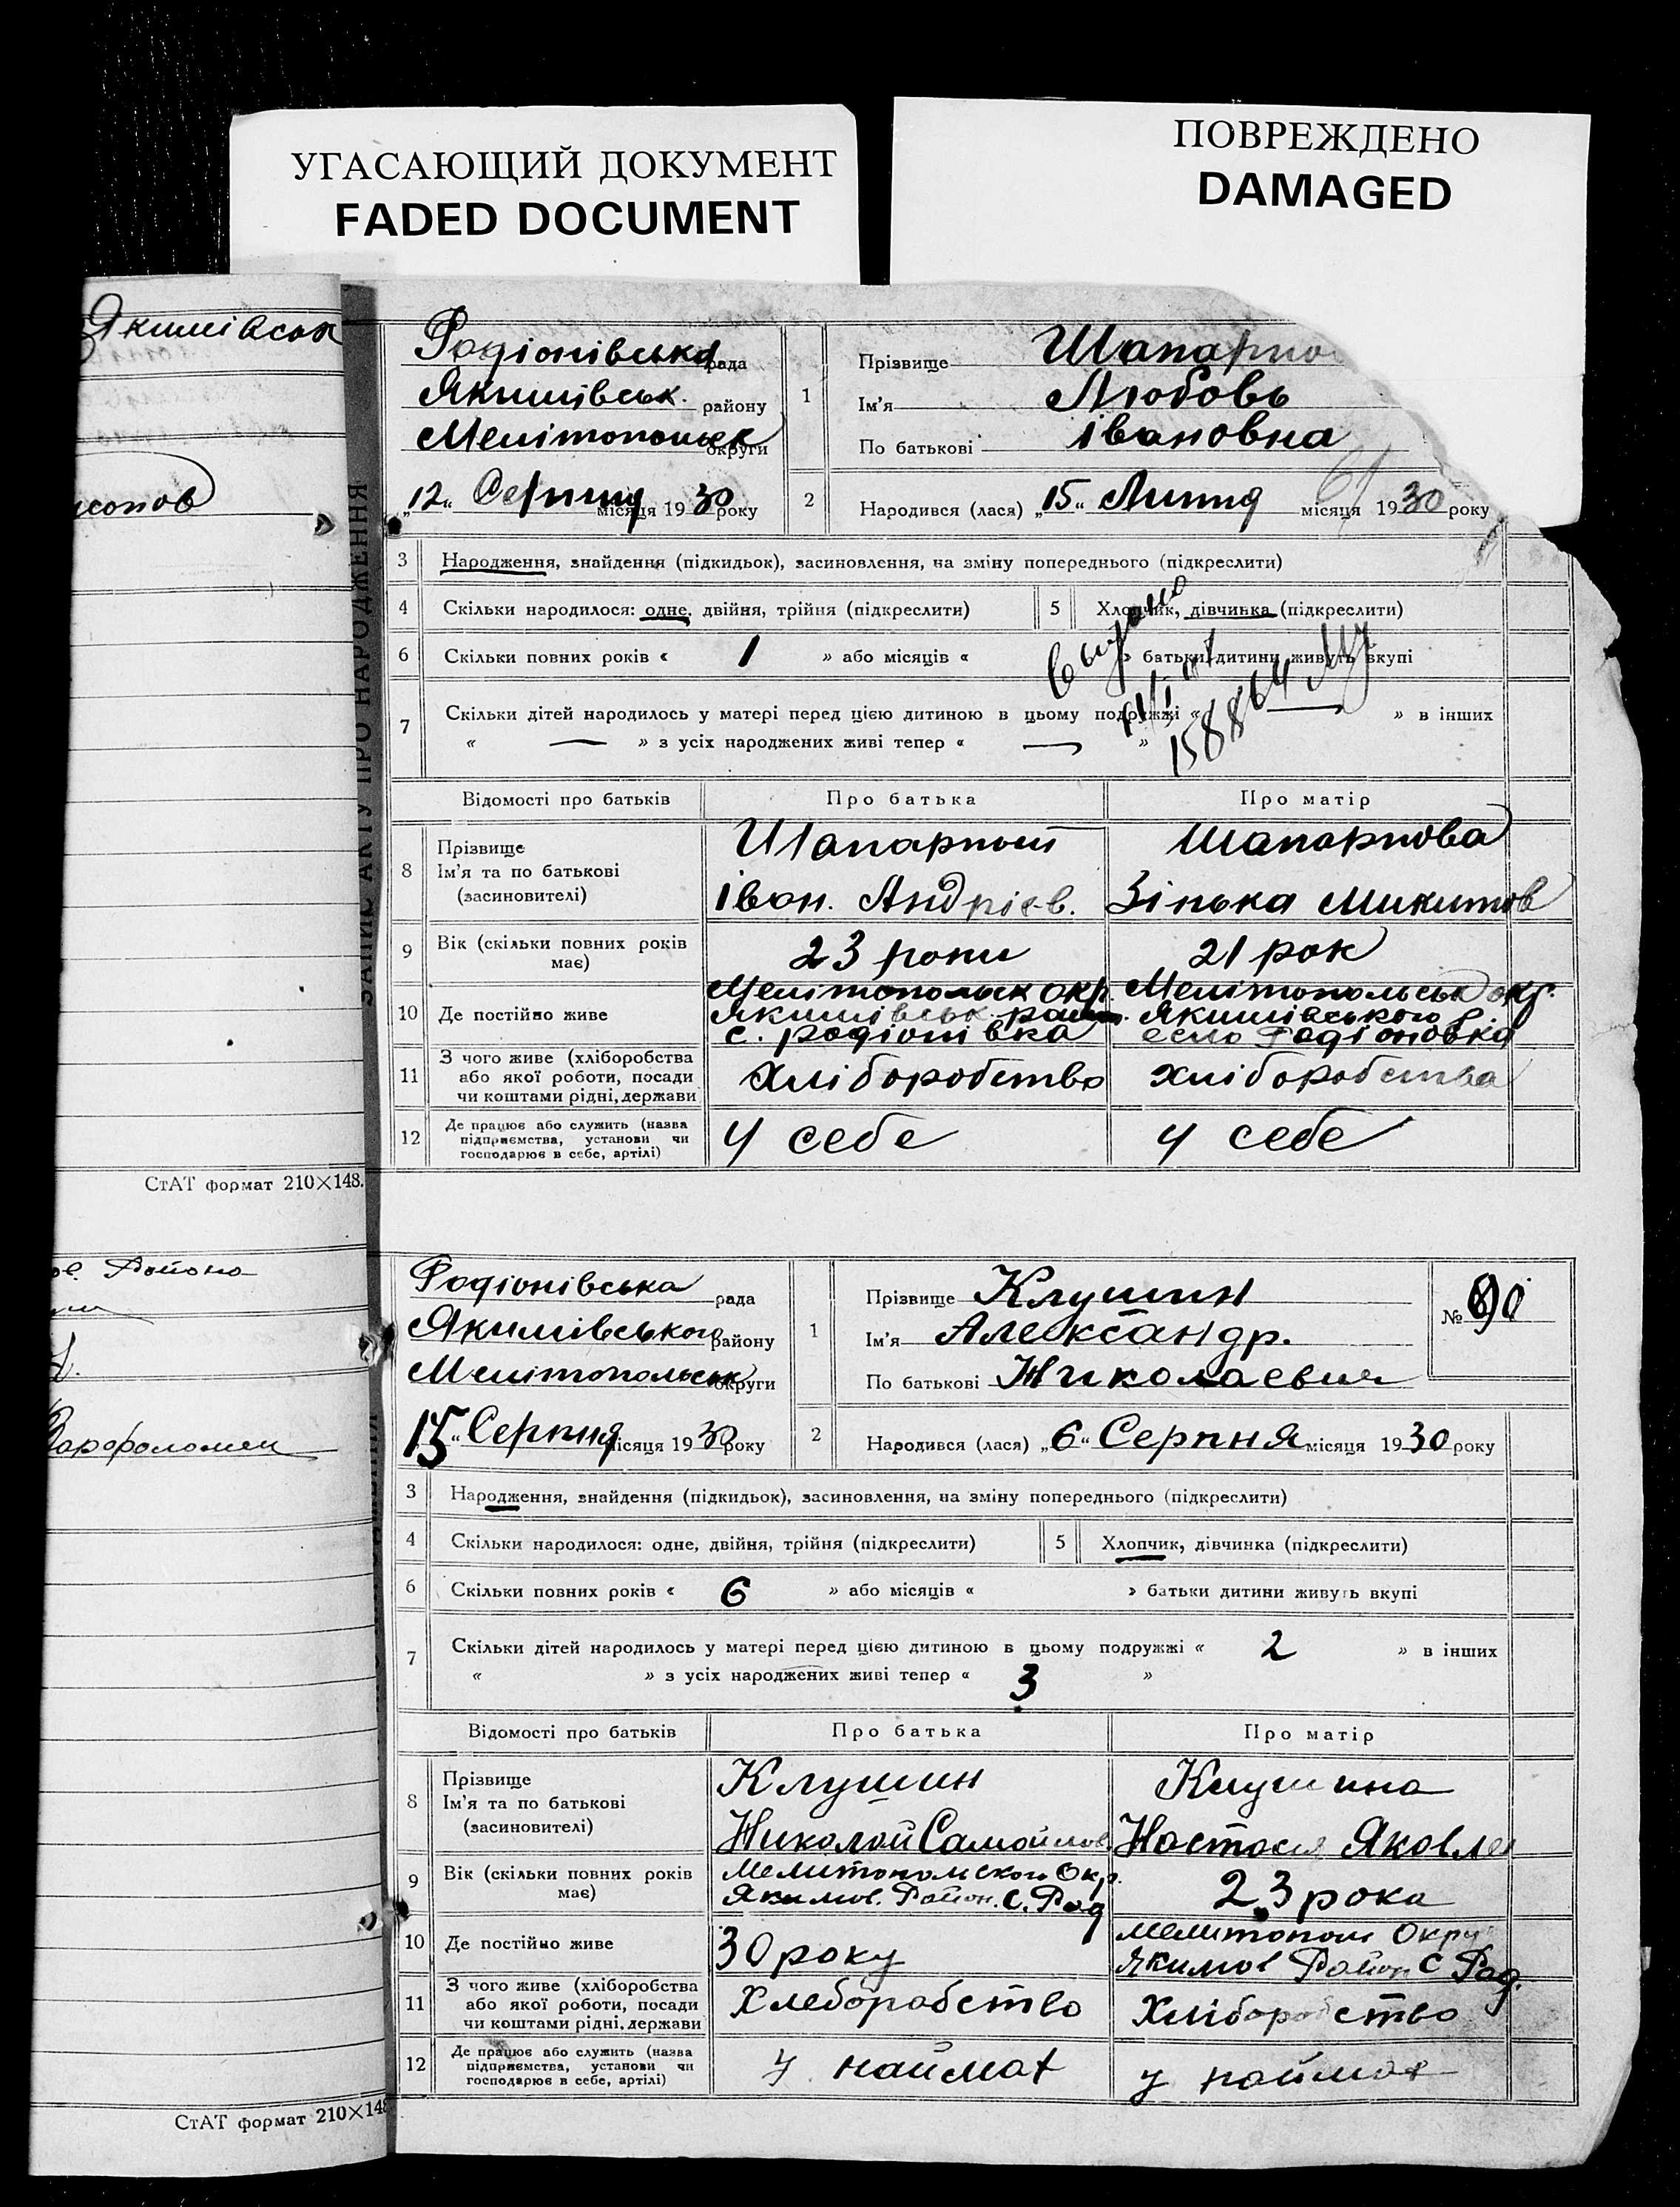 УГАСАЮЩИЙ ДОКУМЕНТ
FADED DOCUMENT
ПОВРЕЖДЕНО
DAMAGED
Якимівськ
СтАТ формат 210×148.
Района
СтАТ формат 210×148
ЗАПИС АКТУ ПРО НАРОДЖЕННЯ
Родіонівська рада
Якимівськ. району
Мелітопольск округи
„12“ Серпня місяця 1930 року
1
Прізвище Шапарно
Ім'я Любовь
По батькові івановна
2
Народився (лася) „15“ Липня місяця 1930 року
3 Народження, знайдення (підкидьок), засиновлення, на зміну попереднього (підкреслити)
4 Скільки народилося: одне, двійня, трійня (підкреслити) 5 Хлопчик, дівчинка (підкреслити)
6 Скільки повних років « 1 » або місяців « » батьки дитини живуть вкупі
7 Скільки дітей народилось у матері перед цією дитиною в цьому подружжі « — » в інших
« — » з усіх народжених живі тепер « — »
Відомості про батьків Про батька Про матір
8 Прізвище
Ім'я та по батькові
(засиновителі)
Шапарной
іван. Андрієв.
Шапарнова
Зінька Микитов
9 Вік (скільки повних років
має)
23 роки
21 рок
10 Де постійно живе
Мелітопольск окр.
Якимівськ район.
с. родіонівка
Мелітопольськ окр.
Якимівського р.
село Родіоновка
11 З чого живе (хліборобства
або якої роботи, посади
чи коштами рідні, держави
Хліборобство
хліборобства
12 Де працює або служить (назва
підприємства, установи чи
господарює в себе, артілі)
У себе
У себе
Родіонівська рада
Якимівського району
Мелітопольськ округи
15 “ Серпня місяця 1930 року
1
Прізвище Клушин
Ім'я Александр.
По батькові Николаевич
№ 90
2
Народився (лася) „6“ Серпня місяця 1930 року
3 Народження, знайдення (підкидьок), засиновлення, на зміну попереднього (підкреслити)
4 Скільки народилося: одне, двійня, трійня (підкреслити) 5 Хлопчик, дівчинка (підкреслити)
6 Скільки повних років « 6 » або місяців « » батьки дитини живуть вкупі
7 Скільки дітей народилось у матері перед цією дитиною в цьому подружжі « 2 » в інших
« » з усіх народжених живі тепер « 3 »
Відомості про батьків Про батька Про матір
8 Прізвище
Ім'я та по батькові
(засиновителі)
Клушин
Николай Самойлов.
Клушина
Настасия Яковле
9 Вік (скільки повних років
має)
Мелитопольского Окр.
Якимов. Район. с. Род
23 рока
10 Де постійно живе
30 року
Мелитополь Окру
Якимов Район с Род.
11 З чого живе (хліборобства
або якої роботи, посади
чи коштами рідні, держави
Хлеборабство
Хліборобство
12 Де працює або служить (назва
підприємства, установи чи
господарює в себе, артілі)
у наймах
у наймах